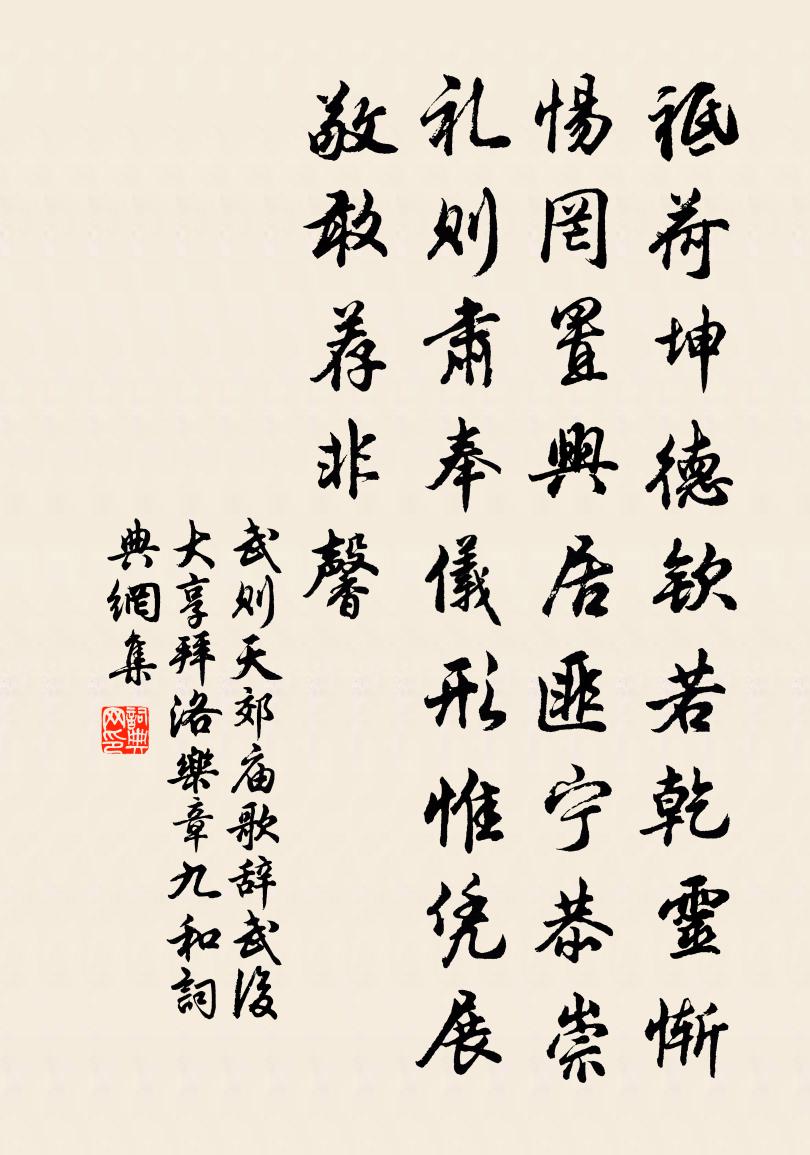 祗荷坤德欽若乾靈慚
惕罔置興居匪宁恭崇
礼则肅奉儀形惟凭展
敬敢荐非馨
武则天郊庙歌辞武後
大享拜洛樂章九和詞
典網集
詞典
网印